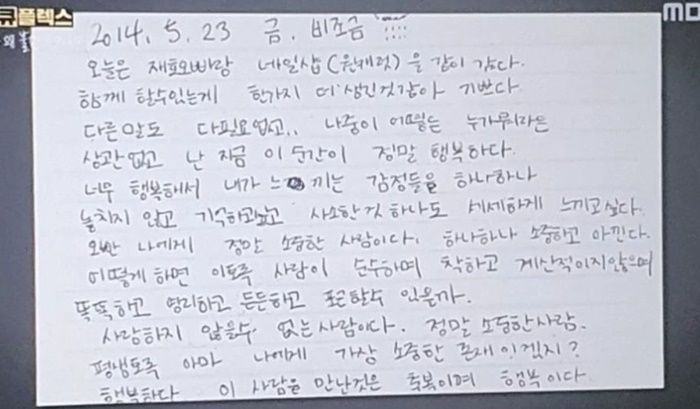 큐플렉스
MB
2014. 5. 23 금. 비조금
오늘은 재호오빠랑 네일샵(원캐럿)을 같이 갔다.
함께 할수있는게 한가지 더 생긴것같아 기쁘다
다른말도 다필요없고.. 나중이 어떻든 누가뭐라든
상관없고 난 지금 이 순간이 정말 행복하다.
너무 행복해서 내가 느끼는 감정들을 하나하나
놓치지 않고 기억하고싶고 사소한것 하나도 세세하게 느끼고싶다.
오빤 나에게 정말 소중한 사람이다. 하나하나 소중하고 아낀다.
어떻게 하면 이토록 사람이 순수하며 착하고 계산적이지않으며
똑똑하고 영리하고 든든하고 포근할수 있을까.
사랑하지 않을수 없는사람이다. 정말 소중한사람.
평생토록 아마 나에게 가장 소중한 존재이겠지?
행복하다 이 사람을 만난것은 축복이며 행복이다.